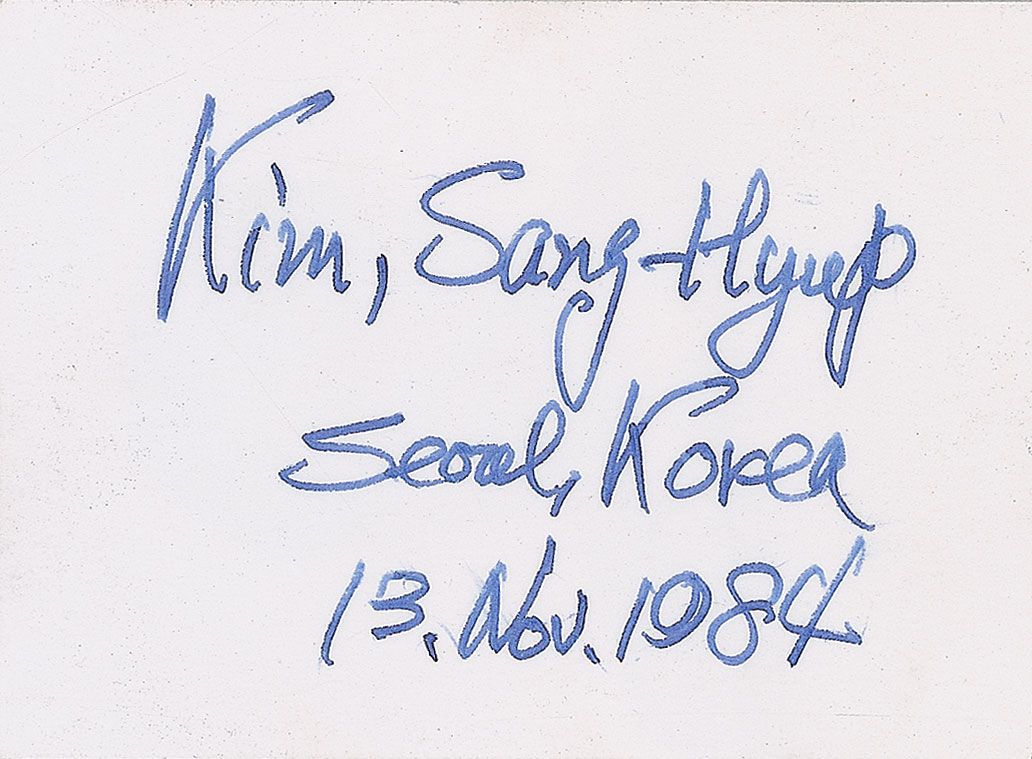 Kim, Sang-Hyup
Seoul, Korea
13. Nov. 1984